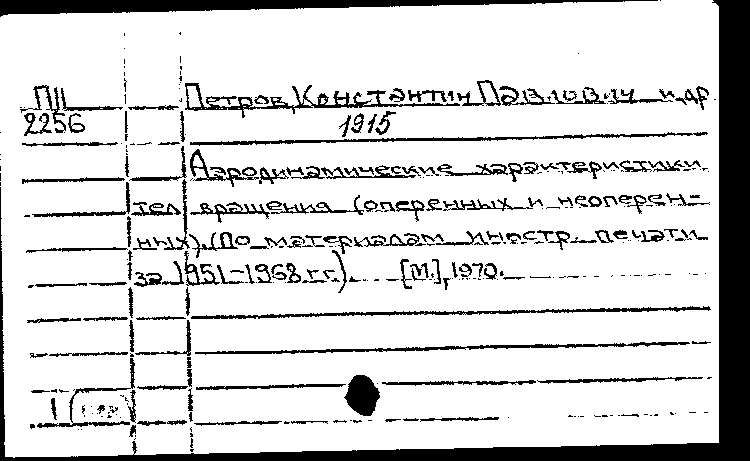 ПII Петров, Константин Павлович и др
2256 1915
Аэродинамические характеристики
тел вращения (оперенных и неоперен-
ных). (По материалам иностр. печати
за 1951-1968 г.г.). [М.], 1970.
1